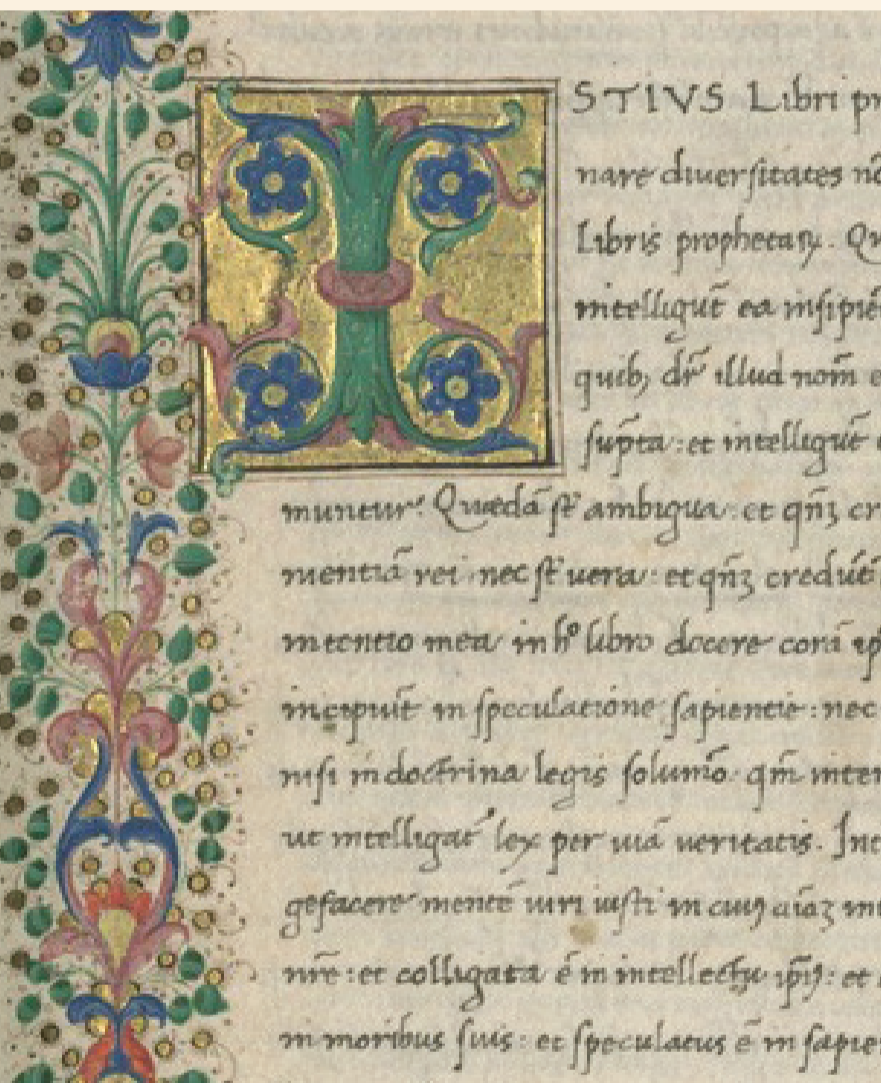 ISTIVS Libri pr
nare diuersitates nō
Libris prophetaꝝ. Qu
intelligūt ea insipiē
quibꝫ dr̄ illud nom̄ e
sūpta: et intelligūt
muntur. Quædā st̄ ambigua: et qn̄ꝫ cr
mentiā rei nec st̄ uera: et qn̄ꝫ credūt
intentio mea in hº libro docere corā
incipiūt in speculatione sapientie: nec
nisi in doctrina legis solum̄o qm̄ inten
ut intelligat lex per uiā ueritatis. Int
gefacere mentē uiri iusti in cuiꝰ aīaꝫ
nr̄e: et colligata ē in intellectu ip̄iꝰ: et
in moribus suis: et speculatus ē in sapie